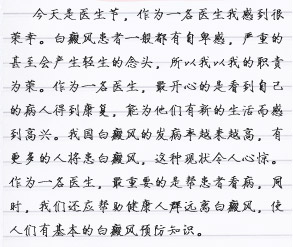 今天是医生节，作为一名医生我感到很
荣幸。白癜风患者一般都有自卑感，严重的
甚至会产生轻生的念头，所以我以我的职责
为荣。作为一名医生，最开心的是看到自己
的病人得到康复，能为他们有新的生活而感
到高兴。我国白癜风的发病率越来越高，有
更多的人将患白癜风，这种现状令人心惊。
作为一名医生，最重要的是帮患者看病，同
时，我们还应帮助健康人群远离白癜风，使
人们有基本的白癜风预防知识。